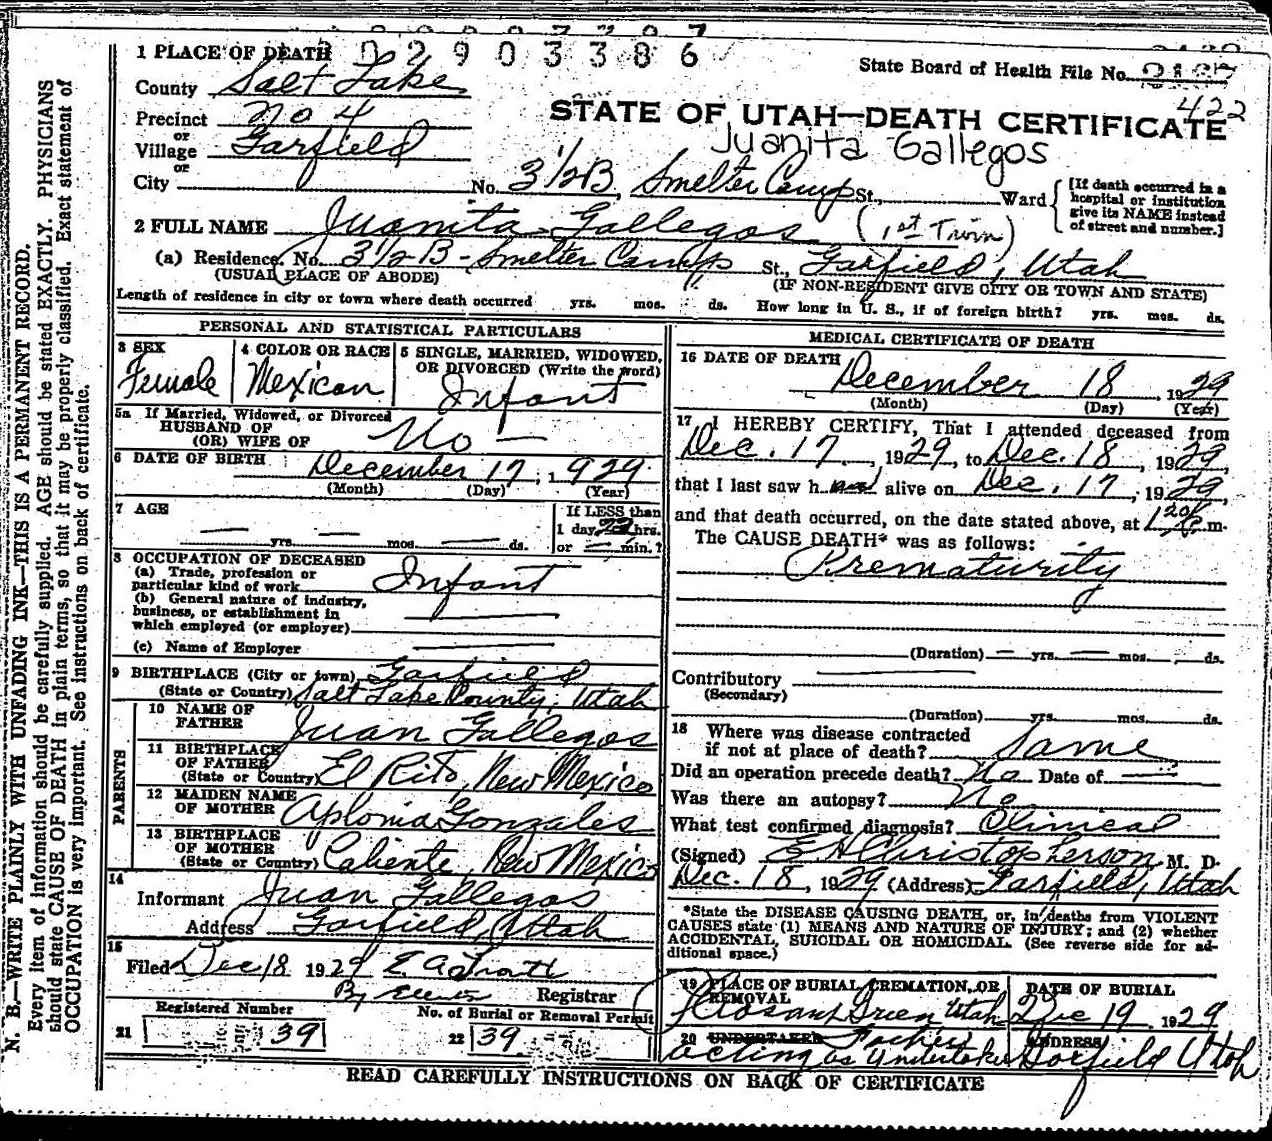 0 2 9 0 3 3 8 6
1 PLACE OF DEATH
State Board of Health File No.
County Salt Lake
422
Precinct No 4
STATE OF UTAH—DEATH CERTIFICATE
or
Village Garfield
Juanita Gallegos
or
City No. 3½B, Smelter Camp St., Ward
[If death occurred in a hospital or institution give its NAME instead of street and number.]
2 FULL NAME Juanita Gallegos (1st Twin)
(a) Residence. No. 3½B - Smelter Camp St., Garfield, Utah
(USUAL PLACE OF ABODE) (IF NON-RESIDENT GIVE CITY OR TOWN AND STATE)
Length of residence in city or town where death occurred yrs. mos. ds. How long in U. S., if of foreign birth? yrs. mos. ds.
PERSONAL AND STATISTICAL PARTICULARS
3 SEX
Female
4 COLOR OR RACE
Mexican
5 SINGLE, MARRIED, WIDOWED, OR DIVORCED (Write the word)
Infant
5a If Married, Widowed, or Divorced
HUSBAND OF
(OR) WIFE OF No —
6 DATE OF BIRTH December 17, 1929
(Month) (Day) (Year)
7 AGE
— yrs. — mos. — ds.
If LESS than
1 day 22 hrs.
or — min.?
8 OCCUPATION OF DECEASED
(a) Trade, profession or
particular kind of work Infant
(b) General nature of industry,
business, or establishment in
which employed (or employer)
(c) Name of Employer
9 BIRTHPLACE (City or town) Garfield
(State or Country) Salt Lake County, Utah
PARENTS
10 NAME OF
FATHER Juan Gallegos
11 BIRTHPLACE
OF FATHER
(State or Country) El Rito, New Mexico
12 MAIDEN NAME
OF MOTHER Aplonia Gonzales
13 BIRTHPLACE
OF MOTHER
(State or Country) Caliente, New Mexico
14
Informant Juan Gallegos
Address Garfield, Utah
15
Filed Dec 18 1929
By Registrar
Registered Number
21 39
No. of Burial or Removal Permit
22 39
MEDICAL CERTIFICATE OF DEATH
16 DATE OF DEATH December 18 1929
(Month) (Day) (Year)
17 I HEREBY CERTIFY, That I attended deceased from
Dec. 17, 1929, to Dec. 18, 1929
that I last saw h alive on Dec. 17, 1929,
and that death occurred, on the date stated above, at m.
The CAUSE DEATH* was as follows:
Prematurity
(Duration) — yrs. — mos. ds.
Contributory
(Secondary)
(Duration) yrs. mos. ds.
18 Where was disease contracted
if not at place of death? Same
Did an operation precede death? No Date of —
Was there an autopsy? No
What test confirmed diagnosis? Clinical
(Signed) E H Christopherson M. D.
Dec. 18, 1929 (Address) Garfield, Utah
*State the DISEASE CAUSING DEATH, or, in deaths from VIOLENT
CAUSES state (1) MEANS AND NATURE OF INJURY; and (2) whether
ACCIDENTAL, SUICIDAL OR HOMICIDAL. (See reverse side for ad-
ditional space.)
19 PLACE OF BURIAL, CREMATION, OR
REMOVAL
Pleasant Green Utah
DATE OF BURIAL
Dec 19 1929
20 UNDERTAKER Father
acting as Undertaker
ADDRESS
Garfield Utah
READ CAREFULLY INSTRUCTIONS ON BACK OF CERTIFICATE
N. B.—WRITE PLAINLY WITH UNFADING INK—THIS IS A PERMANENT RECORD.
Every item of information should be carefully supplied. AGE should be stated EXACTLY. PHYSICIANS
should state CAUSE OF DEATH in plain terms, so that it may be properly classified. Exact statement of
OCCUPATION is very important. See instructions on back of certificate.